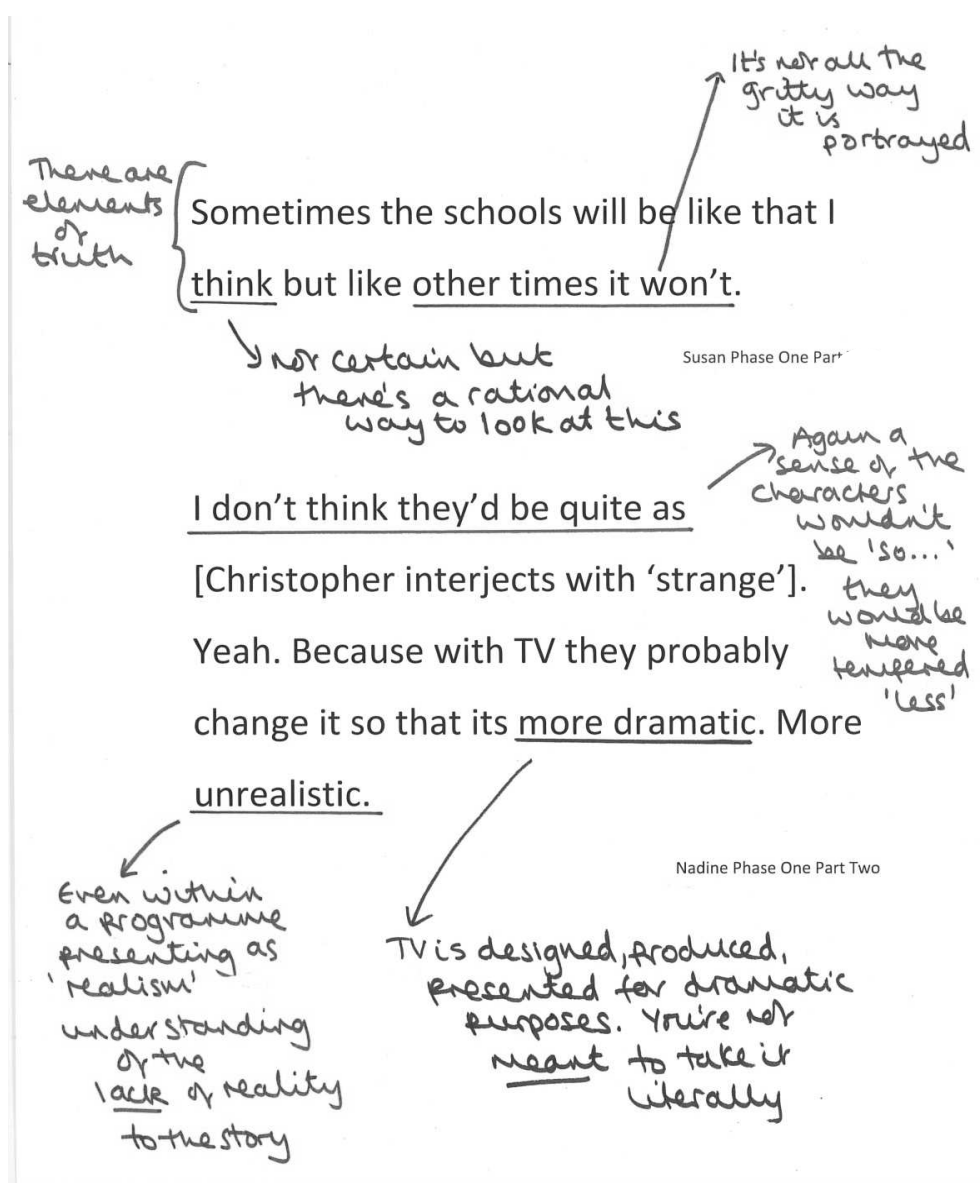 It's not all the
gritty way
it is
portrayed
There are
elements
of
truth
Sometimes the schools will be like that I
think but like other times it won't.
not certain but
there's a rational
way to look at this
Susan Phase One Part
Again a
sense of the
characters
wouldn't
be 'so...'
they
would be
more
tempered
'less'
I don't think they'd be quite as
[Christopher interjects with 'strange'].
Yeah. Because with TV they probably
change it so that its more dramatic. More
unrealistic.
Nadine Phase One Part Two
Even within
a programme
presenting as
'realism'
understanding
of the
lack of reality
to the story
TV is designed, produced,
presented for dramatic
purposes. You're not
meant to take it
literally